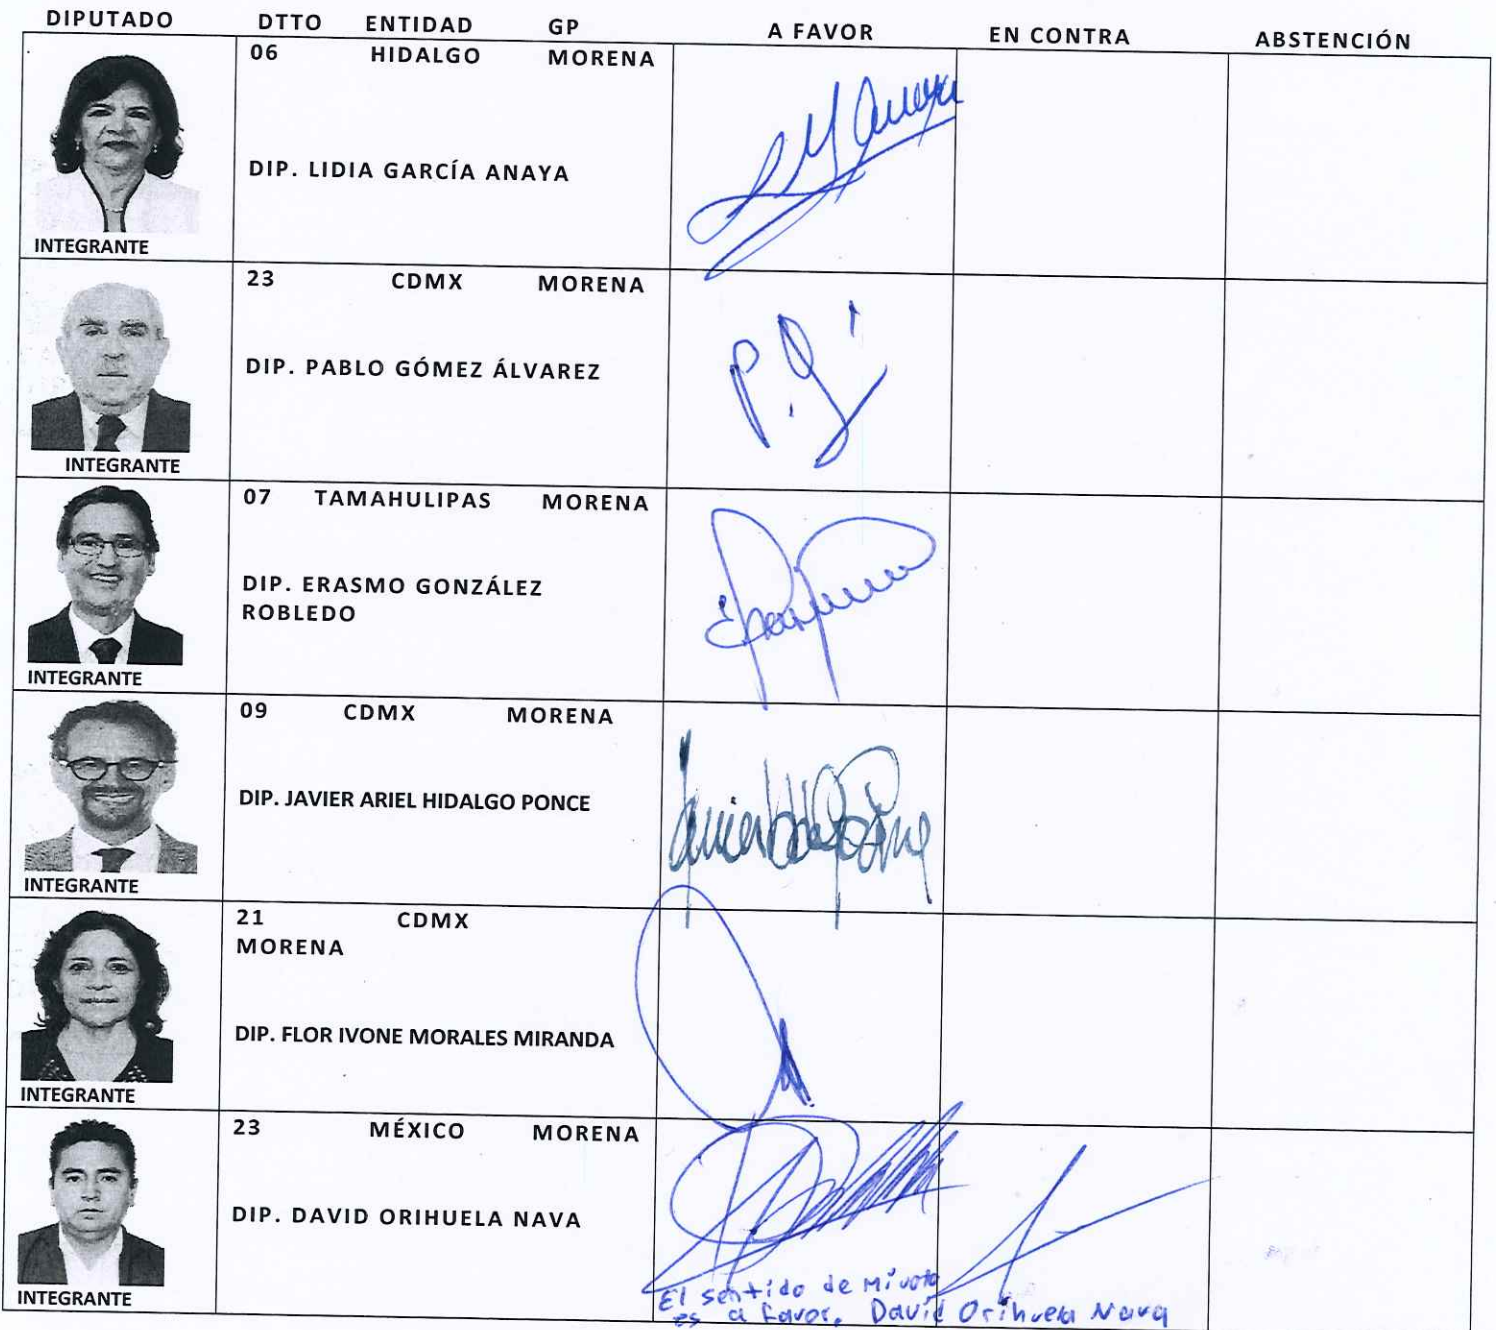 DIPUTADO DTTO ENTIDAD GP A FAVOR EN CONTRA ABSTENCIÓN
06 HIDALGO MORENA
DIP. LIDIA GARCÍA ANAYA
INTEGRANTE
23 CDMX MORENA
DIP. PABLO GÓMEZ ÁLVAREZ
P.G
INTEGRANTE
07 TAMAHULIPAS MORENA
DIP. ERASMO GONZÁLEZ
ROBLEDO
INTEGRANTE
09 CDMX MORENA
DIP. JAVIER ARIEL HIDALGO PONCE
INTEGRANTE
21 CDMX
MORENA
DIP. FLOR IVONE MORALES MIRANDA
INTEGRANTE
23 MÉXICO MORENA
DIP. DAVID ORIHUELA NAVA
INTEGRANTE
El sentido de Mi voto
es a favor. David Orihuela Nava